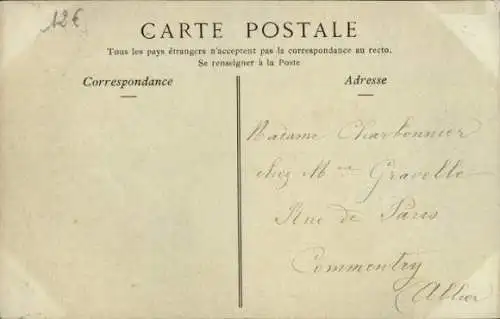 12€
CARTE POSTALE
Tous les pays étrangers n'acceptent pas la correspondance au recto.
Se renseigner à la Poste
Correspondance
Adresse
Madame Charbonnier
chez Mme Gravelle
Rue de Paris
Commentry
(Allier)